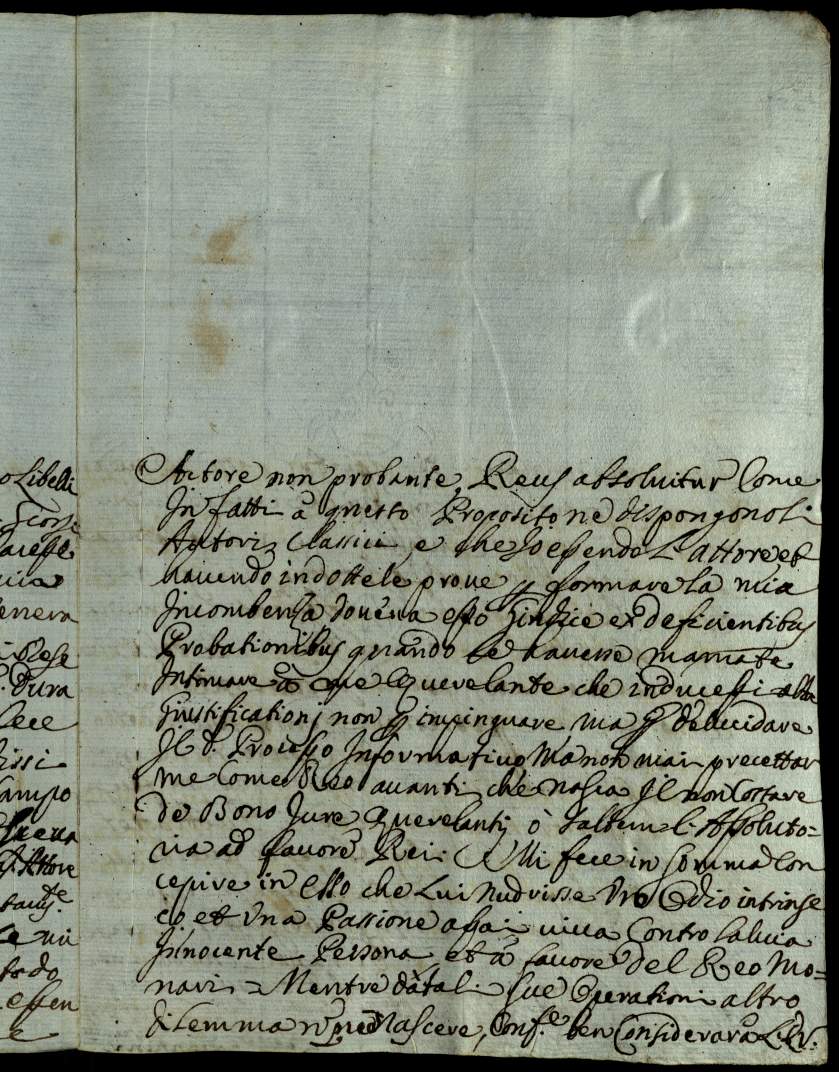 o Libelli
Actore non probante, Reus absolvitur Come
In fatti à questo Proposito ne dispongono li
Autori Classici, e che essendo L'attore et
havendo indotte le prove p formare la mia
Incombenza doveva esso Giudice ex deficientibus
Probationibus quando le havesse
Intimare à me Querelante che inducessi alla
Giustificationi non p impinguare, ma p delucidare
Il d. Processo Informativo Ma non mai precettar
me Come Reo avanti che nasca Il non Costare
de Bono Jure Querelantis ò saltem l'Assoluto=
ria ad favore Rei: Mi fece in somma Con
cepire in Esso che Lui Nudrisse Un Odio intrinse
co et Una Passione assai viva Contro la mia
Innocente Persona et à favore del Reo Mo=
nari = Mentre da tali sue Operationi altro
dilemma può Nascere, ben Considerarà
P. Dura
issi
ampo
Attore
effen
e